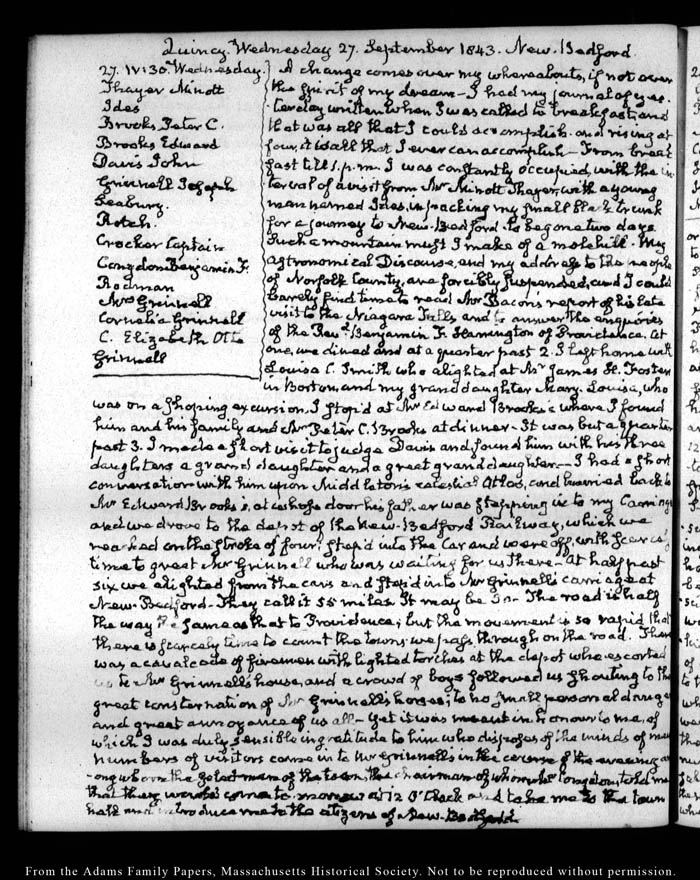 Quincy. Wednesday 27. September 1843. New-Bedford.
27. IV:30. Wednesday.
Thayer Minott
Ides
Brooks Peter C.
Brooks Edward
Davis John
Grinnell Joseph
Seabury.
Rotch.
Crocker Captain
Congdon Benjamin F.
Rodman
Mrs Grinnell
Cornelia Grinnell
C. Elizabeth Otis
Grinnell
A change comes over my whereabouts, if not over
the spirit of my dream— I had my journal of yes-
terday written when I was called to breakfast, and
that was all that I could accomplish. and rising at
four, it is all that I ever can accomplish— From break
fast till 1. p.m. I was constantly occupied, with the in
terval of a visit from Mr Minott Thayer, with a young
man named Ides, in packing my small black trunk
for a journey to New-Bedford to be gone two days.
Such a mountain must I make of a molehill. My
astronomical Discourse, and my address to the people
of Norfolk County, are forcibly suspended, and I could
barely find time to read Mr Bacon's report of his late
visit to the Niagara Falls and to answer the enquiries
of the Revd Benjamin F. of Providence. At
one, we dined and at a quarter past 2. I left home with
Louisa C. Smith who alighted at Mr James H. Foster
in Boston, and my granddaughter Mary-Louisa, who
was on a shoping excursion. I stop'd at Mr Edward Brooks's where I found
him and his family and Mr Peter C. Brooks at dinner— It was but a quarter
past 3. I made a short visit to judge Davis and found him with his three
daughters a grand daughter and a great grand daughter— I had a short
conversation with him upon Middleton's celestial Atlas, and hurried back to
Mr Edward Brooks's, at whose door his father was stepping in to my Carriage
and we drove to the depot of the New-Bedford Railway, which we
reached on the stroke of four; step'd into the Car and were off, with scarcely
time to greet Mr Grinnell who was waiting for us there— At half past
six we alighted from the cars and step'd into Mr Grinnell's carriage at
New-Bedford— They call it 55 miles. It may be 50— The road is half
the way the same as that to Providence; but the movement is so rapid that
there is scarcely time to count the towns we pass through on the road. There
was a cavalcade of firemen with lighted torches at the depot who escorted
us to Mr Grinnell's house, and a crowd of boys followed us shouting to the
great consternation of Mr Grinnell's horses; to no small personal danger
and great annoyance of us all— Yet it was meant in honour to me, of
which I was duly sensible in gratitude to him who disposes of the minds of men
numbers of visitors came in to Mr Grinnell's in the course of the evening am
-ong whom the select men of the town, the chairman of whom Mr Congdon, told me
that they would come to-morrow at 12 O'Clock and take me to the town
hall and introduce me to the citizens of New-Bedford
From the Adams Family Papers, Massachusetts Historical Society. Not to be reproduced without permission.